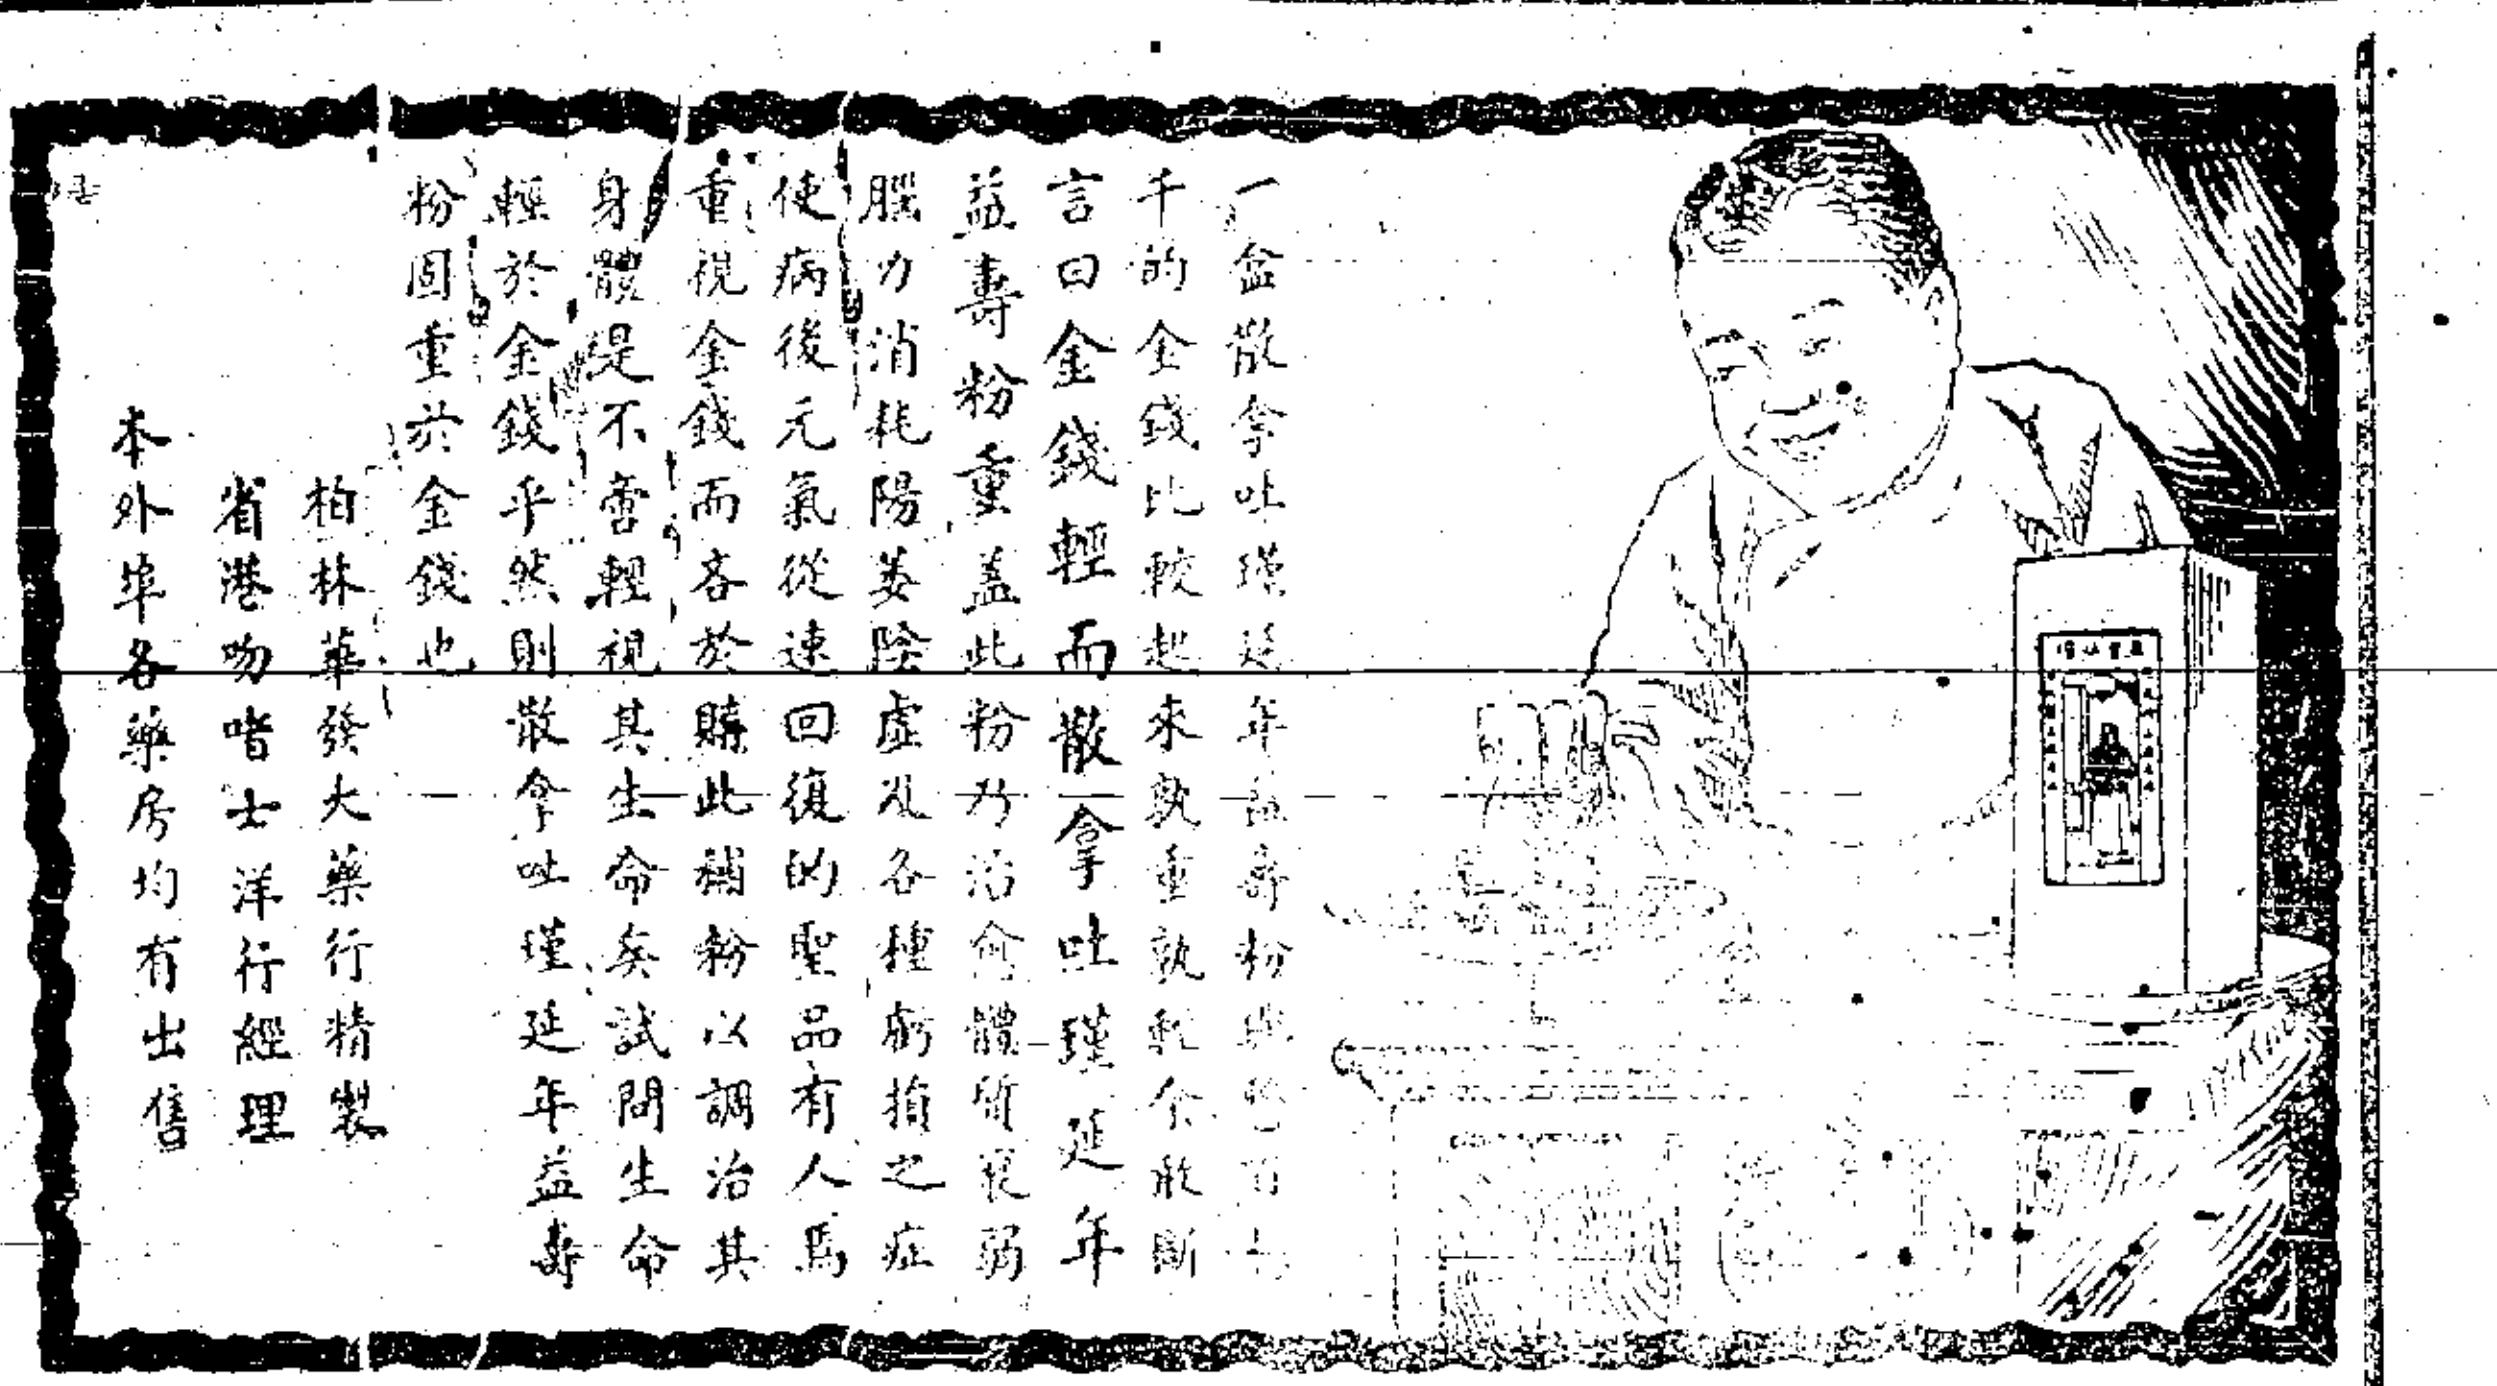 一盒散拿吐瑾延年益壽粉與
千的金錢比較起來孰重孰輕余敢斷
言曰金錢輕而散拿吐瑾延年
益壽粉重蓋此粉乃治療體質衰弱
腦力消耗陽萎陰虛及各種虧損之症
使病後元氣從速回復的聖品有人焉
重視金錢而吝於購此補粉以調治其
身體是不啻輕視其生命矣試問生命
輕於金錢乎然則散拿吐瑾延年益壽
粉固重於金錢也
柏林華發大藥行精製
省港吻喈士洋行經理
本外埠各藥房均有出售